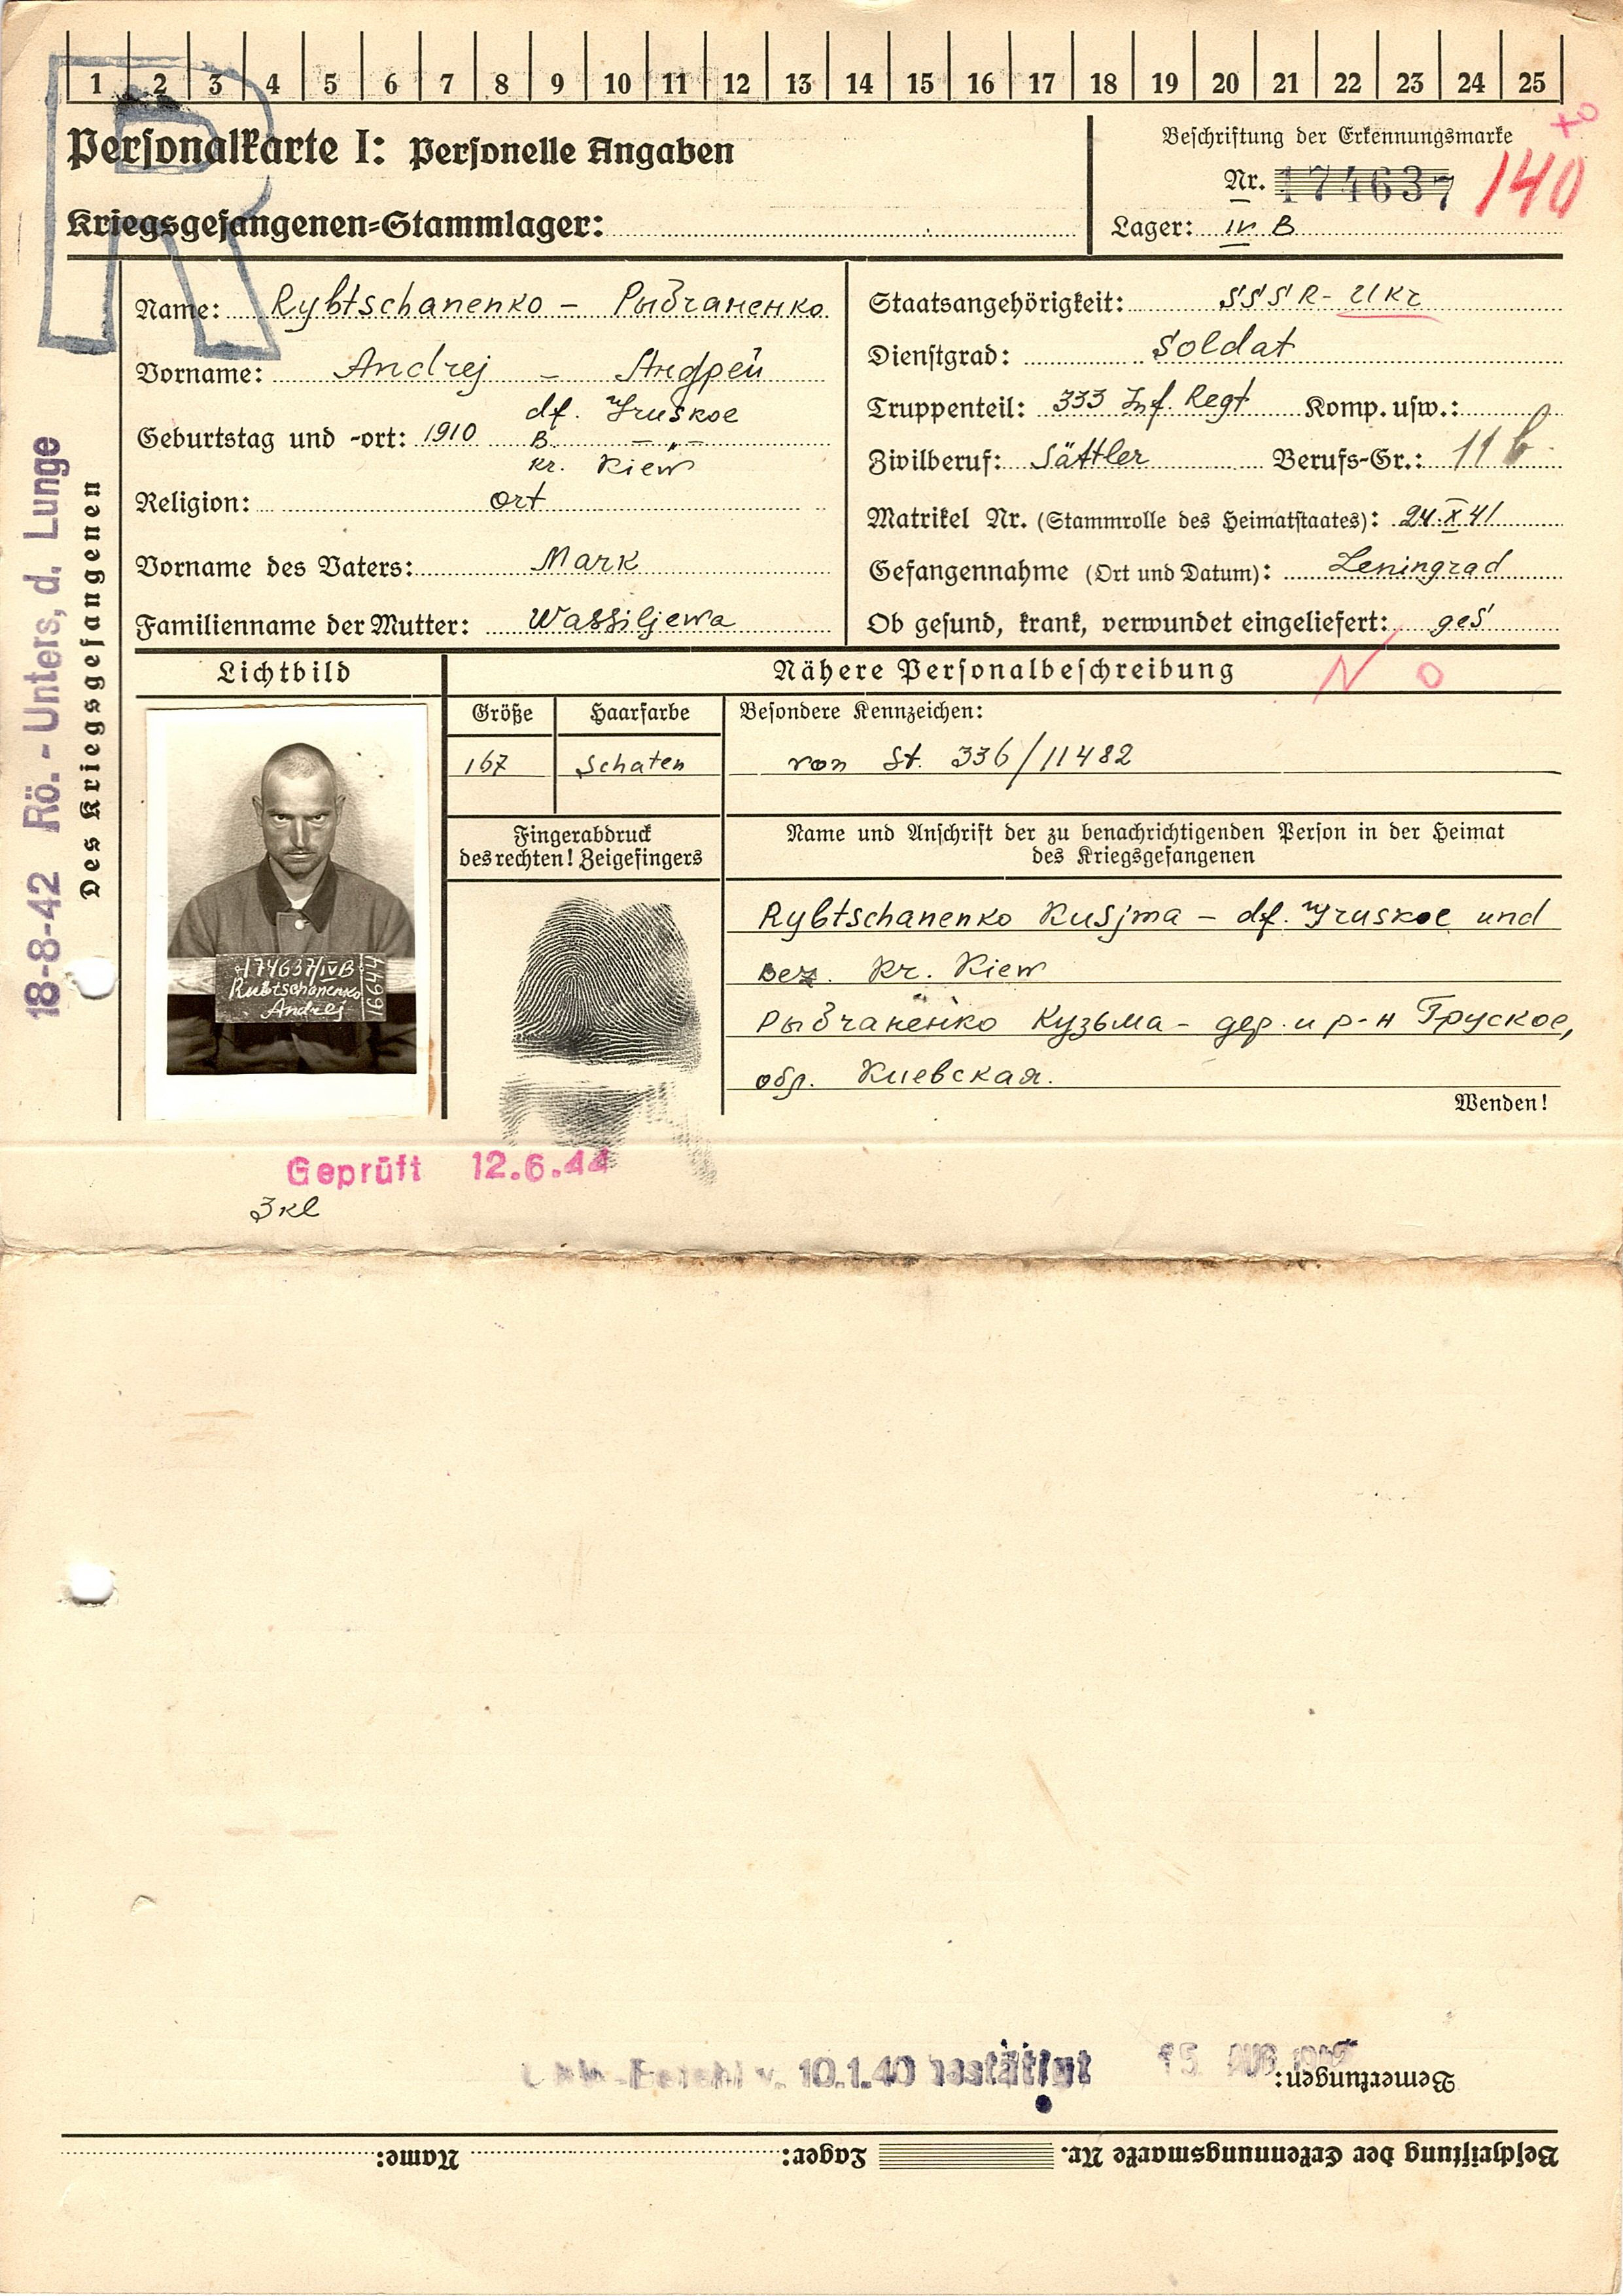 1 2 3 4 5 6 7 8 9 10 11 12 13 14 15 16 17 18 19 20 21 22 23 24 25
R
Personalkarte I: Personelle Angaben
Kriegsgefangenen=Stammlager:
Beschriftung der Erkennungsmarke
Nr. 174637 140
Lager: IV B
Des Kriegsgefangenen
18-8-42 Rö.-Unters, d. Lunge
Name: Rybtschanenko – Рыбчаненко
Vorname: Andrej – Андрей
df. Gruskoe
Geburtstag und -ort: 1910 B. – „ –
Kr. Kiew
Religion: ort
Vorname des Vaters: Mark
Familienname der Mutter: Wassiljewa
Staatsangehörigkeit: SSSR-Ukr
Dienstgrad: Soldat
Truppenteil: 333 Inf. Regt Komp. usw.:
Zivilberuf: Sättler Berufs-Gr.: 11 b
Matrikel Nr. (Stammrolle des Heimatstaates): 24.X.41
Gefangennahme (Ort und Datum): Leningrad
Ob gesund, krank, verwundet eingeliefert: ges
N O
Lichtbild
Nähere Personalbeschreibung
Größe Haarfarbe Besondere Kennzeichen:
167 Schaten von St. 336/11482
Fingerabdruck
des rechten! Zeigefingers
Name und Anschrift der zu benachrichtigenden Person in der Heimat
des Kriegsgefangenen
Rybtschanenko Kusjma – df. Gruskoe und
Bez. Kr. Kiew
Рыбчаненко Кузьма – дер. и р-н Груское,
обл. Киевская.
Wenden!
174637/IVB
Rubtschanenko
Andrej
16644
Geprüft 12.6.44
3 kl
Befehl v. 10.1.40 bestätigt 15 AUG. 1942
Bemerkungen:
Beschriftung der Erkennungsmarke Nr. Lager: Name: